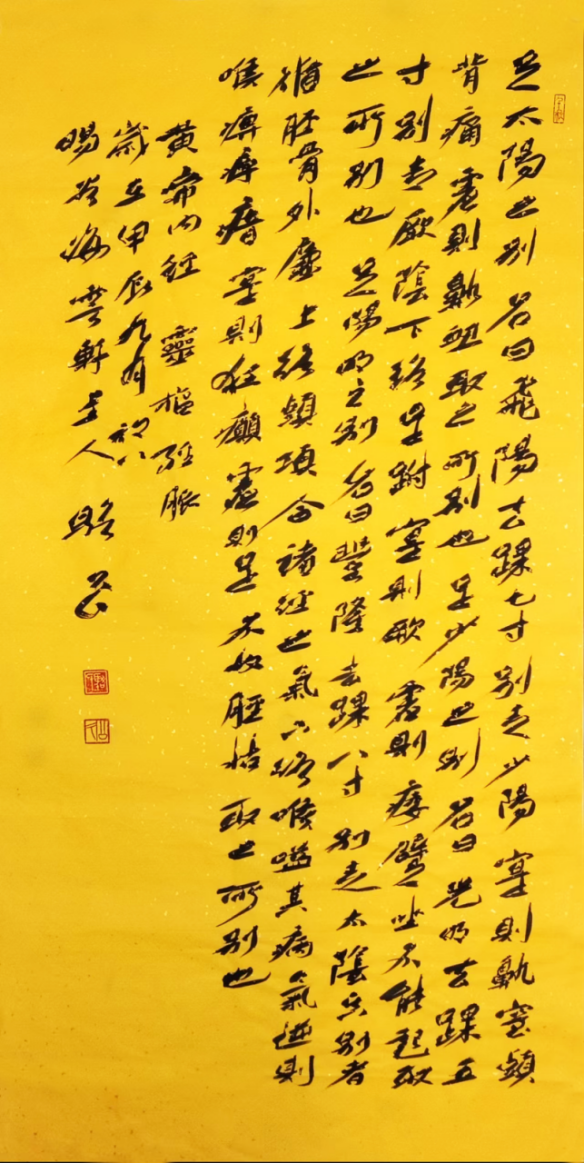 足太陽之別名曰飛陽去踝七寸別走少陽實則鼽窒頭
背痛虛則鼽衄取之所別也足少陽之別名曰光明去踝五
寸別走厥陰下絡足跗實則厥虛則痿躄坐不能起取
之所別也足陽明之別名曰豐隆去踝八寸別走太陰其別者
循脛骨外廉上絡頭項合諸經之氣下絡喉嗌其病氣逆則
喉痹瘁瘖實則狂癲虛則足不收脛枯取之所別也
黃帝內經靈樞經脈
歲在甲辰九月初八
賜谷海雲軒主人